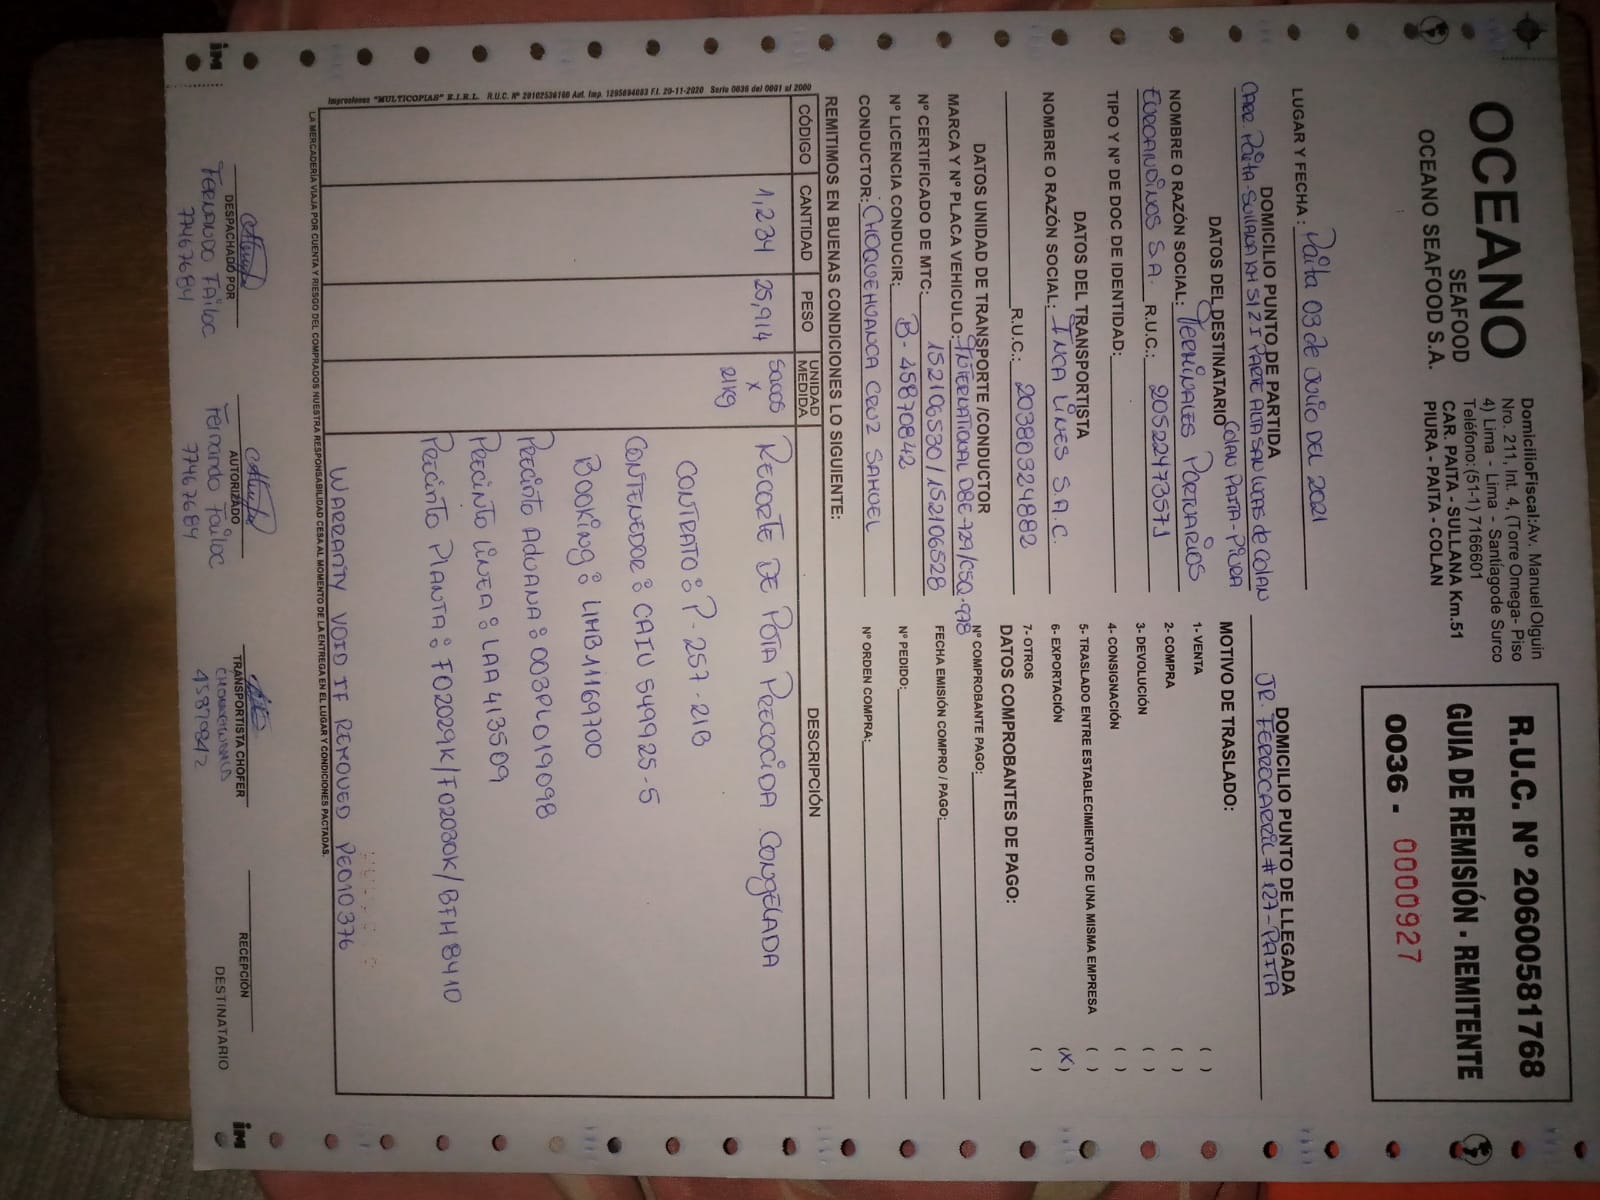 OCEANO
SEAFOOD
OCEANO SEAFOOD S.A.
DomicilioFiscal:Av. Manuel Olguin
Nro. 211, Int. 4, (Torre Omega- Piso
4) Lima - Lima - Santiagode Surco
Teléfono:(51-1) 7166601
CAR. PAITA - SULLANA Km.51
PIURA - PAITA - COLAN
R.U.C. Nº 20600581768
GUIA DE REMISIÓN - REMITENTE
0036 - 0000927
LUGAR Y FECHA: Paita 03 de Julio DEL 2021
DOMICILIO PUNTO DE PARTIDA
CARR. PAITA-SULLANA KM 51 Z I PARTE ALTA SAN LUCAS de COLAN
COLAN PAITA-PIURA
DOMICILIO PUNTO DE LLEGADA
JR. FERROCARRIL # 127-PAITA
DATOS DEL DESTINATARIO
NOMBRE O RAZÓN SOCIAL: TERMINALES PORTUARIOS
EUROANDINOS S.A. R.U.C.: 20522473571
TIPO Y Nº DE DOC DE IDENTIDAD:
DATOS DEL TRANSPORTISTA
NOMBRE O RAZÓN SOCIAL: INCA LINES S.A.C.
R.U.C.: 20380324882
DATOS UNIDAD DE TRANSPORTE /CONDUCTOR
MARCA Y Nº PLACA VEHICULO: INTERNATIONAL D8E-729/C5Q-978
Nº CERTIFICADO DE MTC: 152106530/152106528
Nº LICENCIA CONDUCIR: B-45870842
CONDUCTOR: CHOQUEHUANCA CRUZ SAMUEL
MOTIVO DE TRASLADO:
1- VENTA ( )
2- COMPRA ( )
3- DEVOLUCIÓN ( )
4- CONSIGNACIÓN ( )
5- TRASLADO ENTRE ESTABLECIMIENTO DE UNA MISMA EMPRESA ( )
6- EXPORTACIÓN (X)
7- OTROS ( )
DATOS COMPROBANTES DE PAGO:
Nº COMPROBANTE PAGO:
FECHA EMISIÓN COMPRO / PAGO:
Nº PEDIDO:
Nº ORDEN COMPRA:
REMITIMOS EN BUENAS CONDICIONES LO SIGUIENTE:
CÓDIGO CANTIDAD PESO UNIDAD MEDIDA DESCRIPCIÓN
1,234 25,914 Sacos x 21Kg RECORTE DE POTA PRECOCIDA CONGELADA
CONTRATO: P-257-21B
CONTENEDOR: CAIU 549925-5
BOOKING: LMB1169700
PRECINTO ADUANA: 003PL019098
PRECINTO LINEA: LAA413509
PRECINTO PLANTA: F02029K/F02030K/BFH8410
WARRANTY VOID IF REMOVED PE010376
Impresiones "MULTICOPIAS" E.I.R.L. R.U.C. Nº 20102536160 Aut. Imp. 1295894083 F.I. 20-11-2020 Serie 0036 del 0001 al 2000
LA MERCADERÍA VIAJA POR CUENTA Y RIESGO DEL COMPRADOS NUESTRA RESPONSABILIDAD CESA AL MOMENTO DE LA ENTREGA EN EL LUGAR Y CONDICIONES PACTADAS.
DESPACHADO POR
FERNANDO TAILOC
77467684
AUTORIZADO
Fernando Tailoc
77467684
TRANSPORTISTA CHOFER
CHOQUEHUANCA
45870842
RECEPCIÓN
DESTINATARIO
iM
iM